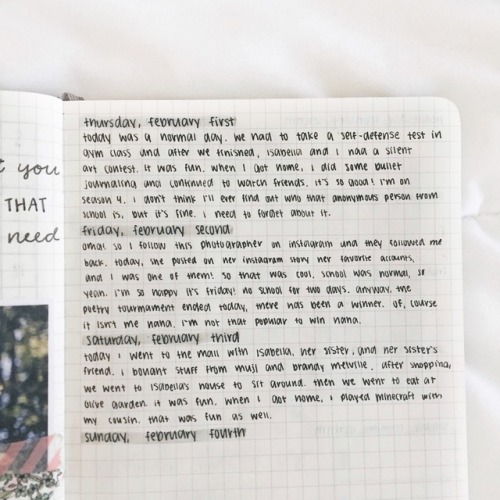 t you
THAT
need
thursday, february first
today was a normal day. we had to take a self-defense test in
gym class and after we finished, isabella and i had a silent
art contest. it was fun. when i got home, i did some bullet
journaling and continued to watch friends. it's so good! i'm on
season 4. i don't think i'll ever find out who that anonymous person from
school is, but it's fine. i need to forget about it.
friday, february second
omg! so i follow this photographer on instagram and they followed me
back. today, she posted on her instagram story her favorite accounts,
and i was one of them! so that was cool. school was normal, so
yeah. i'm so happy it's friday! no school for two days. anyway, the
poetry tournament ended today, there has been a winner. of, course
it isn't me haha. i'm not that popular to win haha.
saturday, february third
today i went to the mall with isabella, her sister, and her sister's
friend. i bought stuff from muji and brandy melville. after shopping,
we went to isabella's house to sit around. then we went to eat at
olive garden. it was fun. when i got home, i played minecraft with
my cousin. that was fun as well.
sunday, february fourth